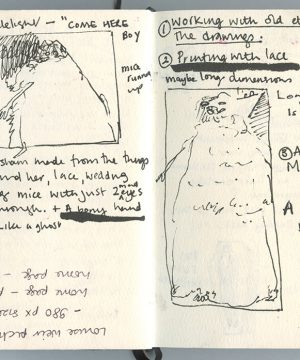 delight - "COME HERE
BOY
mice
runng
up
made from the things
her, lace, wedding
mice with just 2 eyes
through. + A bony hand
like a ghost
home page -
home page - p
- 980 px size
Louise Weir pich
① Working with old
The drawings.
② Printing with lace
maybe long dimensions
Lon
Is
③ A
M
A